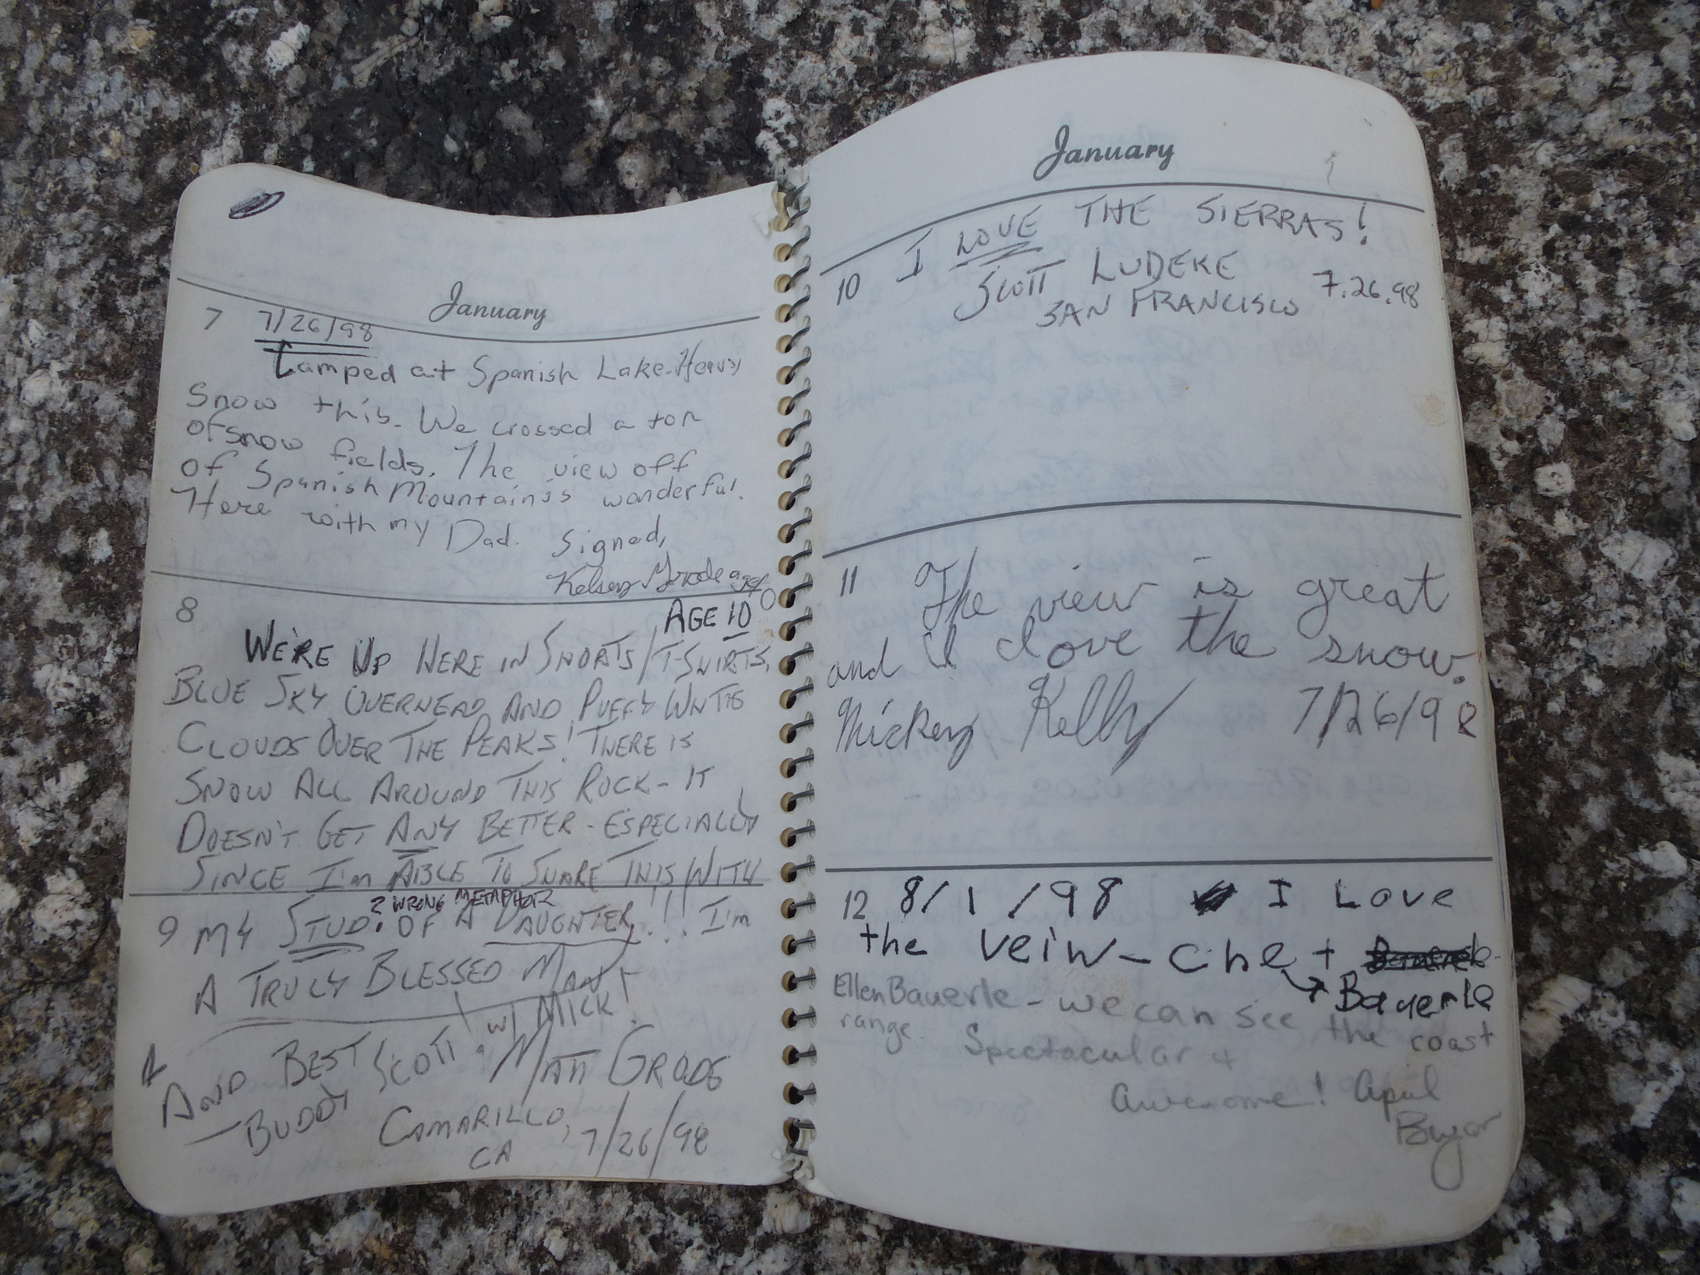 January
7 7/26/98
Camped at Spanish Lake. Heavy
Snow this. We crossed a ton
of snow fields. The view off
of Spanish Mountain is wonderful.
Here with my Dad. Signed,
Kelsey Grode age 10
8 AGE 10
WE'RE UP HERE IN SHORTS/T-SHIRTS,
BLUE SKY OVERHEAD AND PUFFY WHITE
CLOUDS OVER THE PEAKS! THERE IS
SNOW ALL AROUND THIS ROCK - IT
DOESN'T GET ANY BETTER - ESPECIALLY
SINCE I'M ABLE TO SHARE THIS WITH
? WRONG METAPHOR
9 MY STUD? OF A DAUGHTER!!! I'M
A TRULY BLESSED MAN!
W/ MICK!
AND BEST
BUDDY SCOTT!
MATT GRODE
CAMARILLO,
CA 7/26/98
January
10 I LOVE THE SIERRAS!
SCOTT LUDEKE
SAN FRANCISCO 7.26.98
11 The view is great
and I love the snow.
Mickey Kelly 7/26/98
12 8/1/98 I Love
the veiw - Che +
Bauerle
Ellen Bauerle - we can see the coast
range. Spectacular +
awesome! April